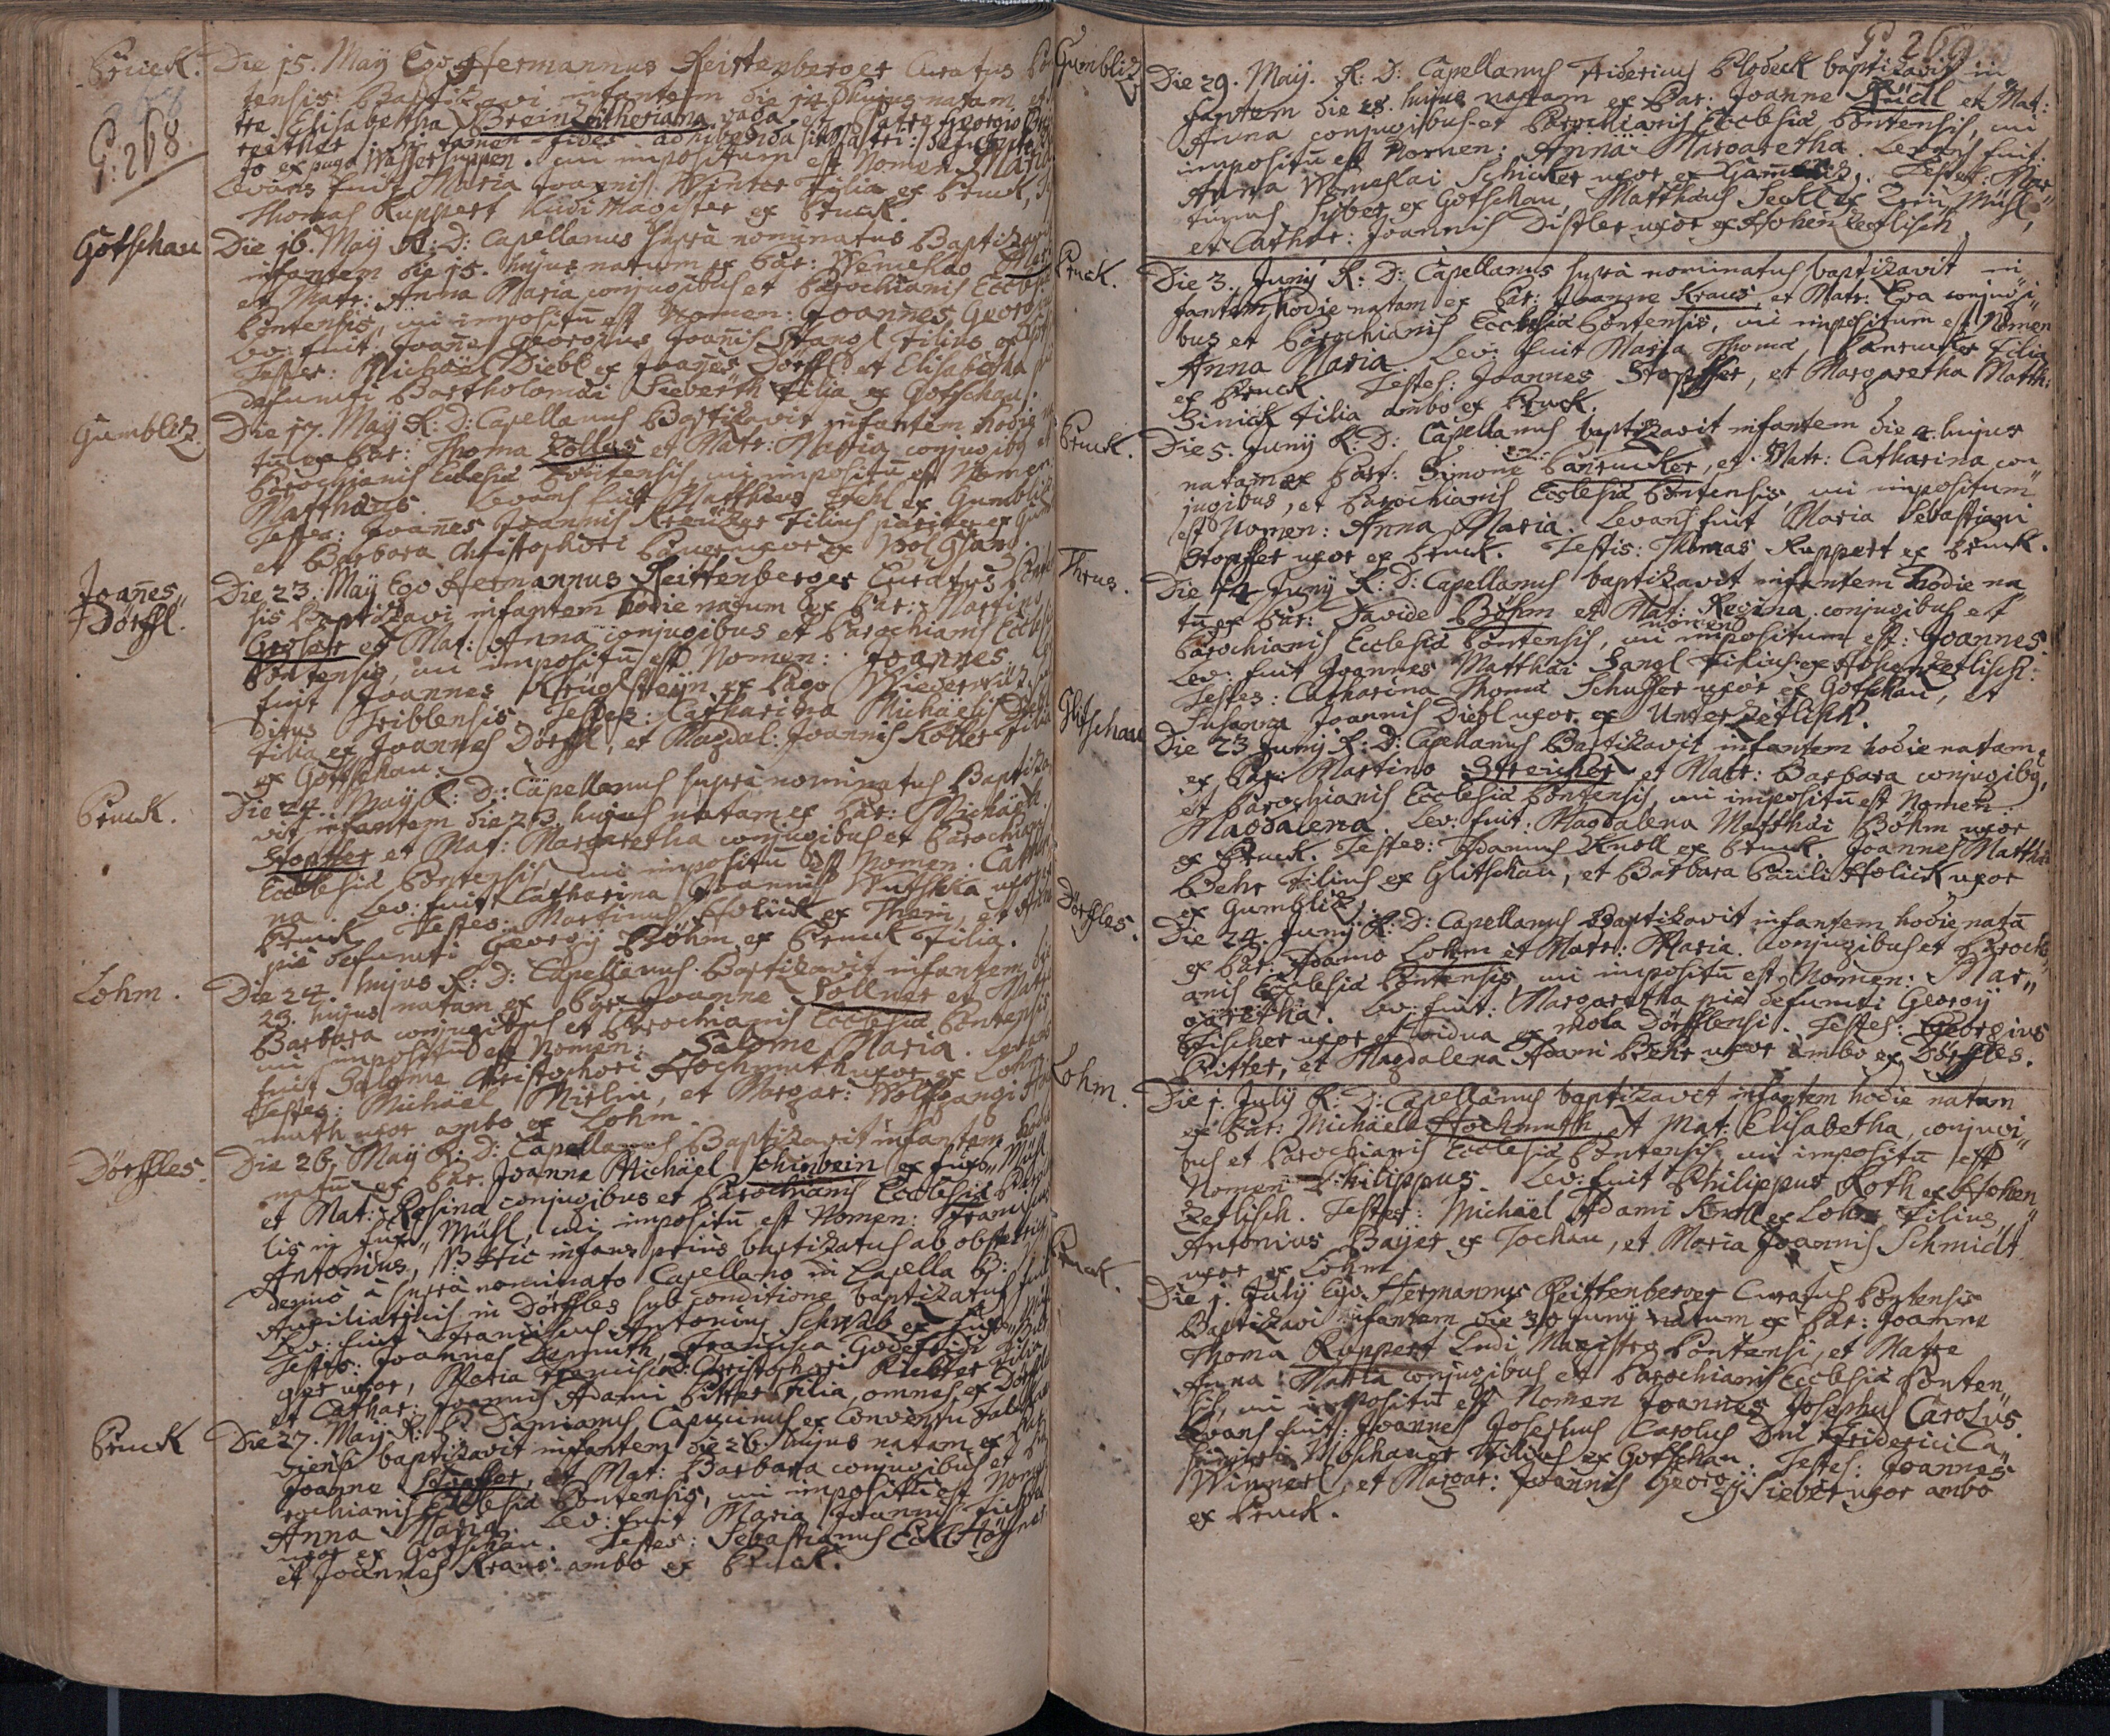 Bruck.
P: 268
Die 15. Maÿ Ego Hermannus Reittenberger Curatus
tensis Baptizavi infantem die 14 hujus natam, et
tre Elisabetha Breinreitheriana vaga est Patre Georgio
reither tamen fides adhibenda sit
ex pago Wassersuppen. cui impositum est Nomen Maria
Levans fuit Maria Joannis Winter Filia ex Bruck,
Thomas Ruppert Ludi Magister ex Bruck.
Gotschau
Die 16. Maÿ R: D: Capellanus supra nominatus Baptizavit
infantem die 15. hujus natum ex Par: Wenceslao
et Matr: Anna Maria conjugibus et Parochianis Eccles
Pontensis, cui impositũ est Nomen: Joannes Georg
Lev: fuit Joañes Georgius Joañis Stangl Filius ex
Testes: Michaël Diebl ex Joañes Dörffl et Elisabetha
defuncti Bartholomæi Sieberth Filia ex Gotschau.
Gumblitz.
Die 17. Maÿ R: D: Capellanus Baptizavit infantem hodie
tũ ex Par: Thoma Zollas et Matr: Maria conjugibq et
Parochianis Eclesiæ Pontensis, cui impositũ est Nomen
Matthæus. Levans fuit Matthæus ex Gumblitz
Testes: Joañes Joannis Kreutzer Filius pariter ex
et Barbara Christophori Bauer uxor ex
Joañes„
Dörffl.
Die 23. Maÿ Ego Hermannus Reittenberger Curatus Ponten
sis Baptizavi infantem hodie natum ex Par: Martino
et Mat: Anna conjugibus et Parochianis Eccles
Pontensis, cui impositũ est Nomen: Joannes.
fuit Joannes ex Pago
ditus Triblensis. Testes: Catharina Michaelis
Filia ex Joannes Dörffl, et Magdal: Joannis Koller Filia
ex Gottschau.
Bruck.
Die 24. Maÿ R: D: Capellanus supra nominatus Baptiza
vit infantem die 23. hujus natam ex Par: Michaële
Stopffer et Mat: Margaretha conjugibus et Parochian
Ecclesiæ Pontensis, cui impositũ est Nomen. Catha
na. Lev: fuit Catharina Joannis Wutschka uxor
Bruck. Testes: Martinus Holick ex Thein, et
piè defuncti Georgÿ Böhm ex Bruck Filia.
Lohm.
Die 24. hujus R: D: Capellanus Baptizavit infantem
23. hujus natam ex Par: Joanne Zollner et Matr
Barbara conjugibus et Parochianis Ecclesiæ Pontensis
cui impositũ est Nomen: Salome Maria. Levans
fuit Salome Christophori Hochmuth uxor ex Lohm
Testes: Michaël Mirlin, et Margar: Wolffgangi
muth uxor ambo ex Lohm.
Dörffles.
Die 26. Maÿ R: D: Capellanus Baptizavit infantem hodie
natũ ex Par. Joanne Michaël Schinbein ex Mühl
et Mat: Rosina conjugibus et Parochianis Ecclesiæ
lis in Mühl, cui impositũ est Nomen: Franciscus
Antonius, NB Hic infans priùs baptizatus ab obstetrice
denuò à supra nominato Capellano in Capella B:
Auxiliatricis in Dörffles sub conditione baptizatus
Lev: fuit Franciscus Antonius Schwab ex
Testes: Joannes Bermuth, Francisca Godefridi
ger uxor, Maria Francisca Christophori Richter Filia
et Cathar: Joannis Adami Pitter Filia, omnes ex Dörffles
Bruck
Die 27. Maÿ R: P: Damianus Capucinus ex Conventu
viensi baptizavit infantem die 26. hujus natam ex
Joanne, et Mat: Barbara conjugibus et
rochianis Ecclesiæ Pontensis, cui impositũ est Nomen
Anna Maria. Lev: fuit Maria Joannis
uxor ex Gotschau. Testes: Sebastianus
et Joannes Kraus ambo ex Bruck.
P. 269
Gumblitz
Die 29. Maÿ. R: D: Capellanus Fridericus Plodeck baptizavit in
fantem die 28. hujus natam ex Par: Joanne Riedl et Mat:
Anna conjugibus et Parochianis Ecclesiæ Pontensis, cui
impositũ est Nomen: Anna Margaretha. Levans fuit
Anna Wenceslai Schicker uxor ex. Testes: Mar„
tinus Syber ex Gotschau, Matthæus ex Mühl,
et Cathar: Joannis Distler uxor ex Hohenzetlisch.
Bruck.
Die 3. Junÿ R: D: Capellanus supra nominatus baptizavit in
fantem hodie natam ex Par: Joanne Kraus, et Matr: Eva conjugi„
bus et Parochianis Ecclesiæ Pontensis, cui impositum est Nomen
Anna Maria. Lev: fuit Maria Thomæ Filia
ex Bruck Testes: Joannes Stopffer, et Margaretha Matth:
Simick Filia ambo ex Bruck.
Bruck.
Die 5. Junÿ R: D: Capellanus baptizavit infantem die 4. hujus
natam ex Par: Simone, et Matr: Catharina con„
jugibus, et Parochianis Ecclesiæ Pontensis, cui impositum
est Nomen: Anna Maria. Levans fuit Maria Sebastiani
Stopffer uxor ex Bruck. Testis: Thomas Ruppert ex Bruck.
Thrus.
Die 14 Junÿ R: D: Capellanus baptizavit infantem hodie na
tũ ex Par: Davide Böhm et Mat: Regina conjugibus et
Parochianis Ecclesiæ Pontensis, cui nomen impositum est: Joannes.
Lev: fuit Joannes Matthæi Zangl Filius ex Hohenzetlisch:
Testes: Catharina Thomæ Schusser uxor ex Gotschau, et
Susanna Joannis Diebl uxor ex Unterzetlisch.
Glitschau
Die 23 Junÿ R: D: Capellanus Baptizavit infantem hodie natam
ex Par: Martino Streicher et Matr: Barbara conjugibq,
et Parochianis Ecclesiæ Pontensis, cui impositũ est Nomen:
Magdalena. Lev: fuit. Magdalena Matthæi Böhm uxor
ex Bruck. Testes: Adamus Knoll ex Bruck. Joannes Matthæi
Behr Filius ex Glitschau, et Barbara Pauli Holick uxor
ex Gumblitz.
Dörffles.
Die 24. Junÿ R: D: Capellanus Baptizavit infantem hodie natã
ex Par: Adamo Lohm et Matr: Maria conjugibus et Parochi„
anis Ecclesiæ Pontensis, cui impositũ est Nomen: Mar„
garetha. Lev: fuit: Margaretha piè defuncti Georgÿ
Fischer uxor et vidua ex mola Dörfflensi. Testes: Georgius
Pitter, et Magdalena Adami Behr uxor ambo ex Dörffles.
Lohm.
Die 1. Julÿ R: D: Capellanus baptizavit infantem hodie natum
ex Par: Michaële Hochmuth, et Mat: Elisabetha, conjugi„
bus et Parochianis Ecclesiæ Pontensis, cui impositũ est
Nomen: Philippus. Lev: fuit Philippus Roth ex Hohen„
Zetlisch. Testes: Michaël Adami Knoll ex Lohm Filius,
Antonius Baÿer ex Tochau, et Maria Joannis Schmidt
uxor ex Lohm
Bruck.
Die 1. Julÿ Ego Hermannus Reittenberger Curatus Pontensis
Baptizavi infantem die 30 Junÿ natum ex Par: Joanne
Thoma Ruppert Ludi Magistro Pontensi, et Matre
Anna Maria conjugibus et Parochianis Ecclesiæ Ponten„
sis, cui impositũ est Nomen Joannes Josephus Carolus.
Levans fuit: Joannes Josephus Carolus Dni Friderici Ca„
simiri Moschauer Filius ex Gotschau. Testes: Joannes
Winnerl, et Margar: Joannis Georgÿ Sieber uxor ambo
ex Bruck.